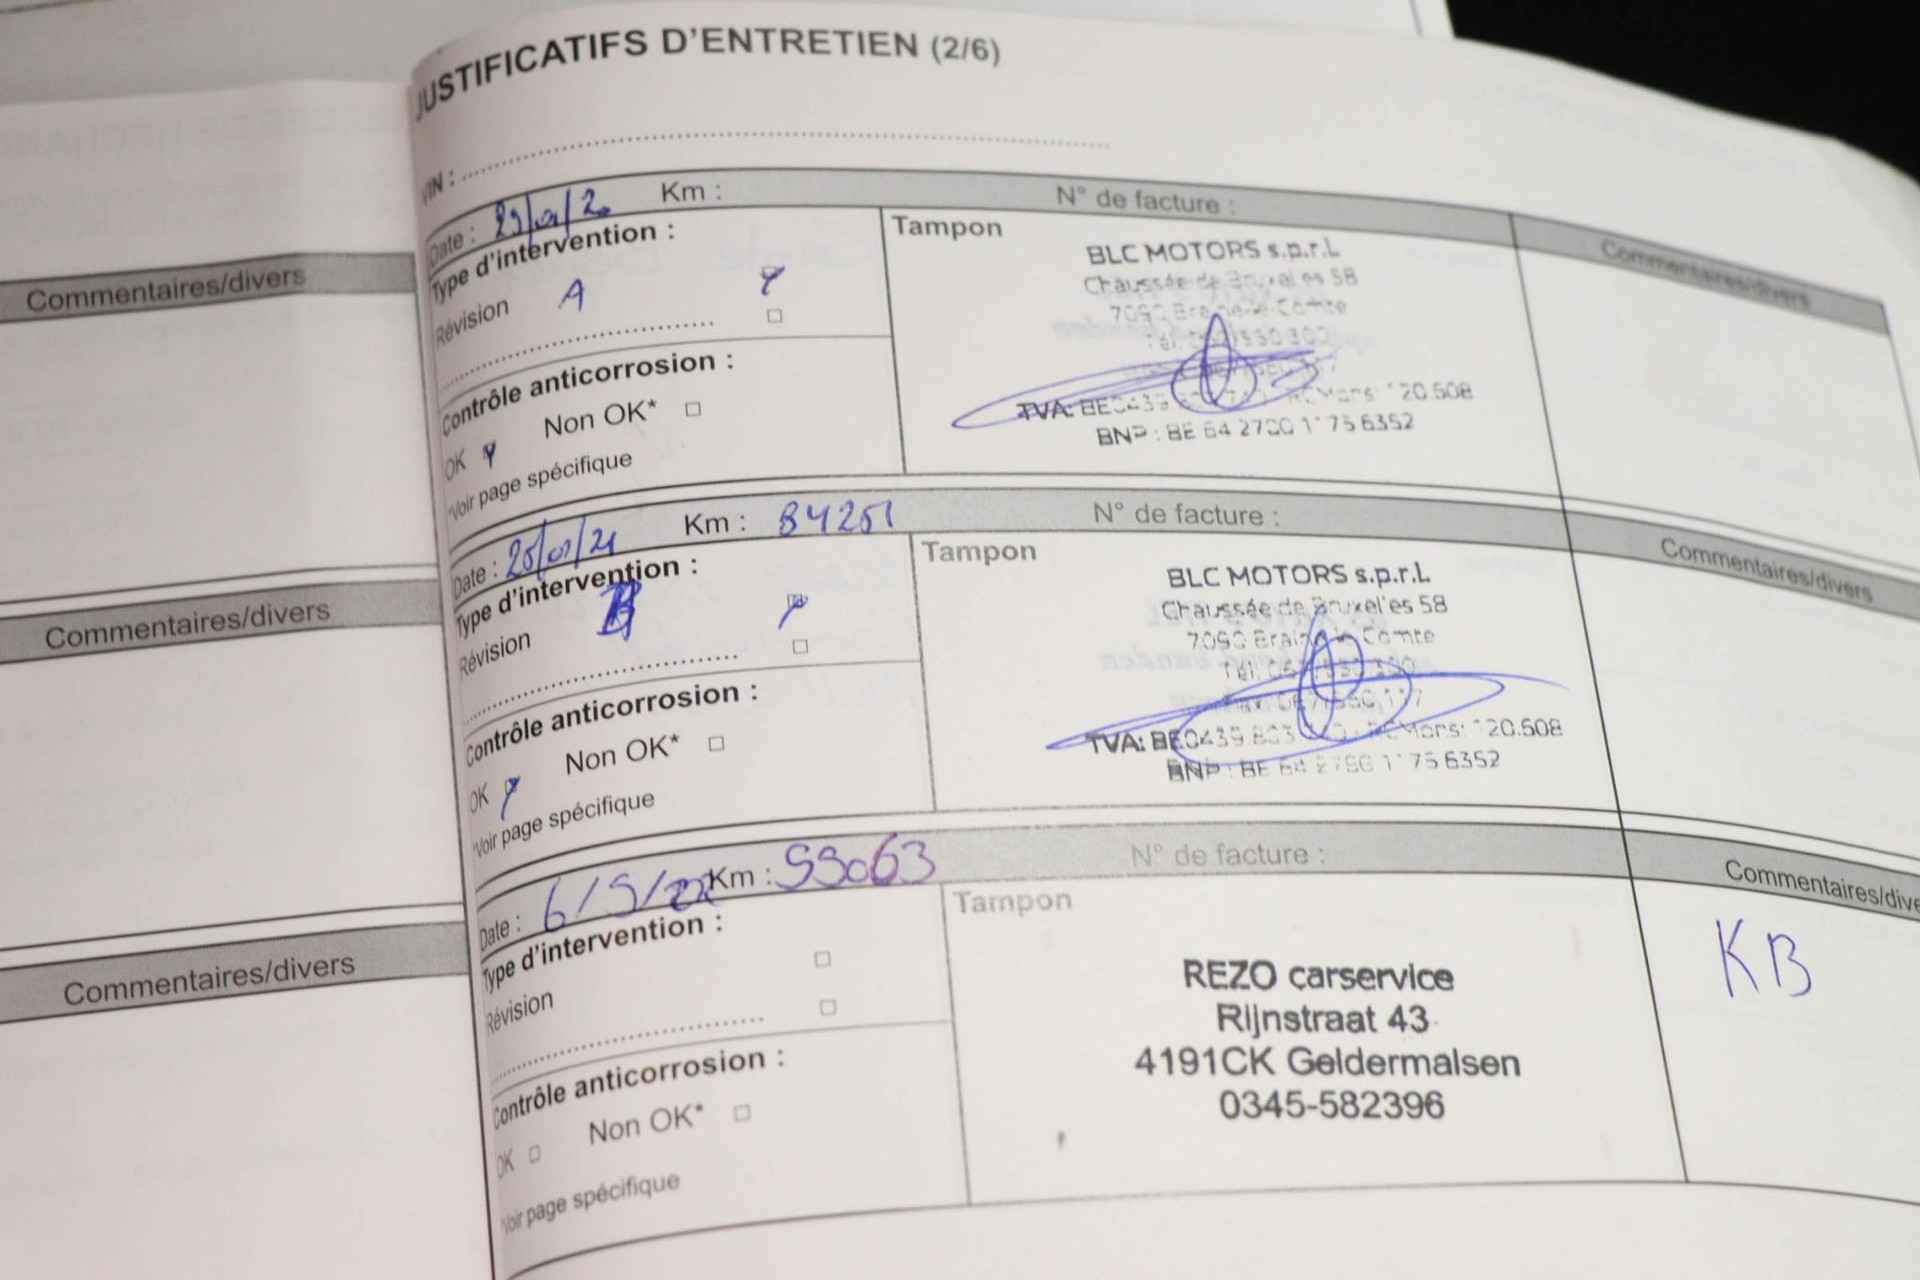 JUSTIFICATIFS D'ENTRETIEN (2/6)
VIN :
Commentaires/divers
Commentaires/divers
Commentaires/divers
Date : 29/01/20 Km : N° de facture :
Commentaires/divers
Type d'intervention :
Révision A
Tampon
BLC MOTORS s.p.r.L
Chaussée de Bruxelles 58
7090 Braine-le-Comte
TVA: BE0439 120.508
BNP : BE 64 2700 1175 6352
Contrôle anticorrosion :
OK Non OK*
*Voir page spécifique
Date : 25/01/21 Km : 84251 N° de facture :
Commentaires/divers
Type d'intervention :
Révision B
Tampon
BLC MOTORS s.p.r.L
Chaussée de Bruxelles 58
7090 Braine-le-Comte
Fax: 067/550,117
TVA: BE0439.803 RCMons: 120.508
BNP : BE 64 2700 1175 6352
Contrôle anticorrosion :
OK Non OK*
*Voir page spécifique
Date : 6/5/22 Km : 99063 N° de facture :
Type d'intervention :
Révision
Tampon
REZO carservice
Rijnstraat 43
4191CK Geldermalsen
0345-582396
KB
Contrôle anticorrosion :
OK Non OK*
*Voir page spécifique